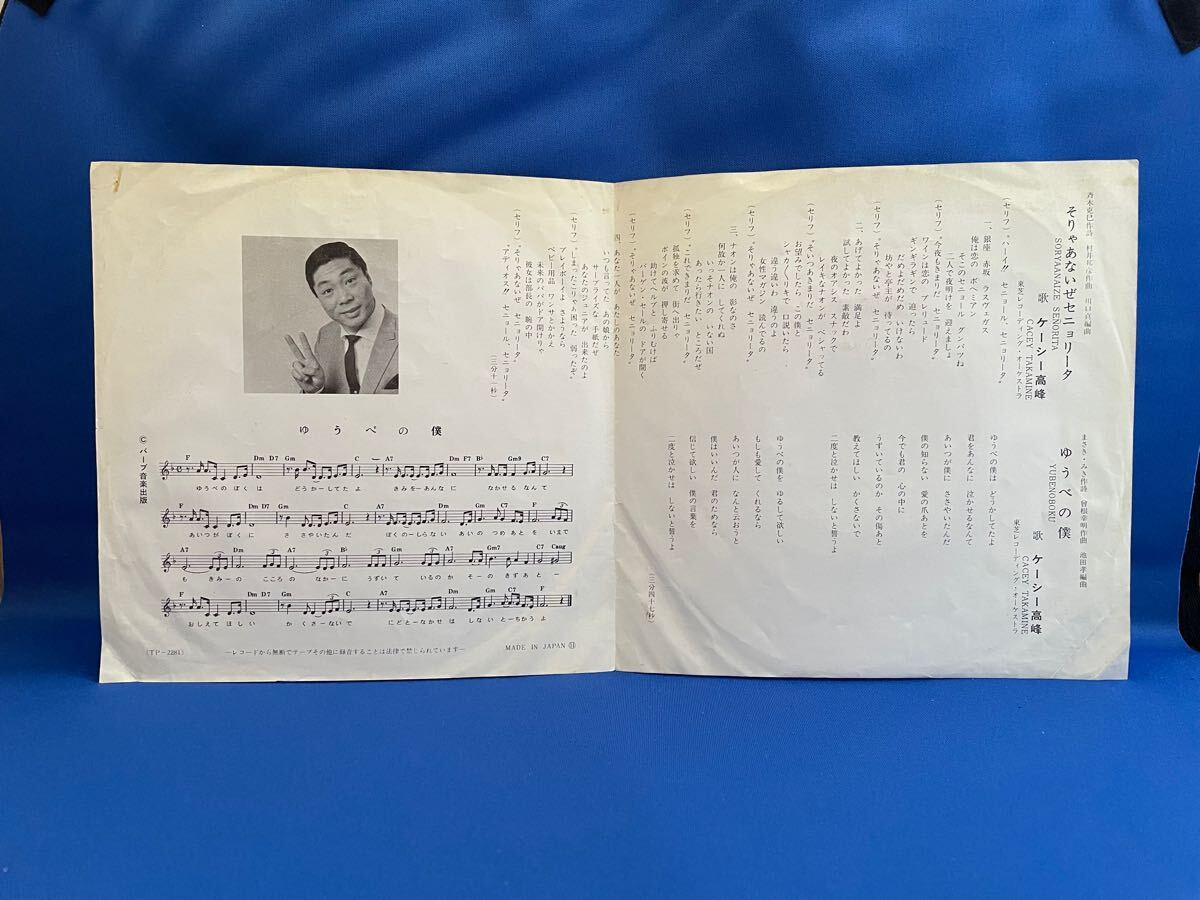 そりゃあないぜセニョリータ
SORYAANAIZE SENORITA
斉木克巳作詩 村井邦彦作曲 川口真編曲
歌 ケーシー高峰
CACEY TAKAMINE
東芝レコーディング・オーケストラ
(セリフ)〝ハーイ!! セニョール セニョリータ〟
一、銀座 赤坂 ラスヴェガス
俺は恋の ボヘミアン
そこのセニョール グンバツね
二人で夜明けを 迎えましょ
(セリフ)〝今夜もきまりだ セニョリータ〟
ワインは恋の プレリュード
ギンギラギンで 迫ったら
だめよだめだめ いけないわ
坊やと亭主が 待ってるの
(セリフ)〝そりゃあないぜ セニョリータ〟
二、あげてよかった 満足よ
試してよかった 素敵だわ
夜のオアシス スナックで
レイキなナオが ペシャってる
(セリフ)〝そいつあきまりだ セニョリータ〟
お望みでしたら この僕と
シャカリキで 口説いたら
違う違いわ 違うのよ
女性マガジン 読んでるの
(セリフ)〝そりゃあないぜ セニョリータ〟
三、ナオンは俺の 影なのさ
何故か一人に してくれぬ
いっそナオンの いない国
あったら行きたい ところだぜ
(セリフ)〝これできまりだ セニョリータ〟
孤独を求めて 街へ出りゃ
ボインの波が 押し寄せる
助けてヘルプと ふりむけば
バーゲンセールの ドアが開く
(セリフ)〝そりゃあないぜ セニョリータ〟
四、あなた一人が あたしのあなた
いつも言ってた あの娘から
サープライズな 手紙だぜ
あなたのジュニアが 出来たのよ
(セリフ)〝まった、こりゃお困った 弱ったぞ〟
プレイボーイよ さようなら
ベビー用品 ワンサとかかえ
未来のパパがドア開けりゃ
彼女は部長の 腕の中
(セリフ)〝そりゃあないぜ セニョリータ〟
〝アディオス セニョール、セニョリータ〟
(三分十一秒)
ゆうべの僕
YUBENOBOKU
まさき・みき作詩 曾根幸明作曲 池田孝編曲
歌 ケーシー高峰
CACEY TAKAMINE
東芝レコーディング・オーケストラ
ゆうべの僕は どうかしてたよ
君をあんなに 泣かせるなんて
あいつが僕に ささやいたんだ
僕の知らない 愛の爪あとを
今でも君の 心の中に
うずいているのか その傷あと
教えてほしい かくさないで
二度と泣かせは しないと誓うよ
ゆうべの僕を ゆるして欲しい
もしも愛して くれるなら
あいつが人に なんと云おうと
僕はいいんだ 君のためなら
信じて欲しい 僕の言葉を
二度と泣かせは しないと誓うよ
(三分四十七秒)
ゆうべの僕
© バーブ音楽出版
F Dm D7 Gm C A7 Dm F7 B♭ Gm9 C7
ゆうべのぼくは どうかーしてたよ きみをーあんなに なかせるなんて
F Dm D7 Gm C A7 Dm Gm C7 F
あいつがぼくに ささやいたんだ ぼくのーしらない あいのつめあとを いまで
A7 Dm Cm F7 B♭ Gm A7 Gm7 C7 Caug
もきみーの こころのなかーに うずいて いるのか そーのきずあとー
F Dm D7 Gm C A7 Dm Gm C7 F
おしえてほしい かくさないで にどとーなかせは しないとーちかうよ
(TP-2281)
―レコードから無断でテープその他に録音することは法律で禁じられています―
MADE IN JAPAN ⑪